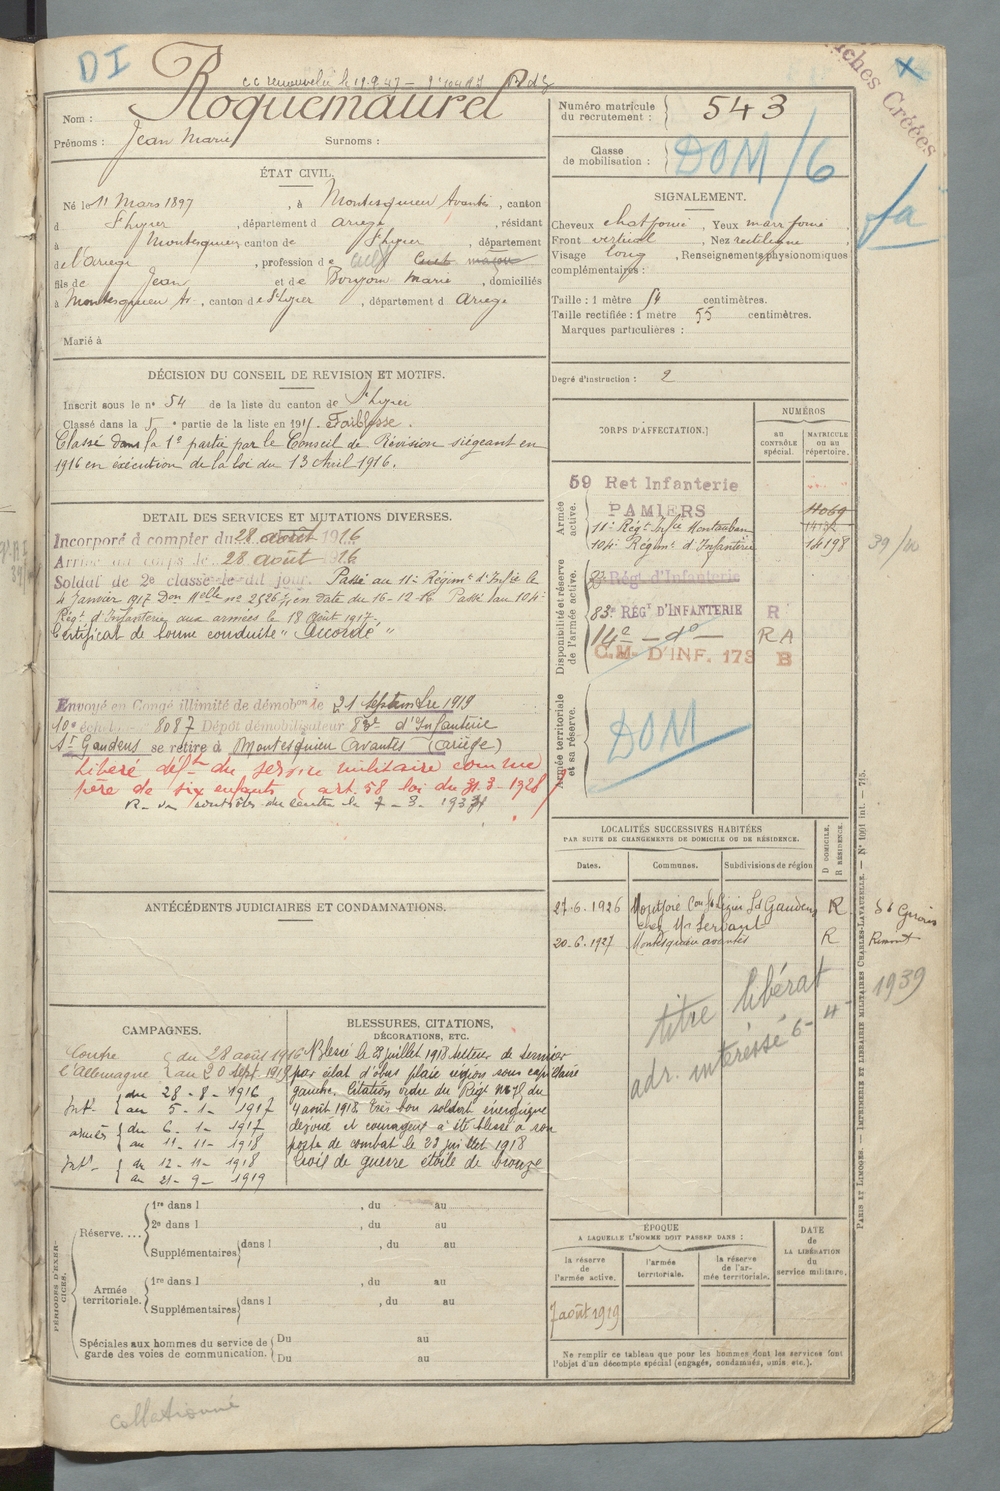 DI
Roquemaurel
Nom :
Prénoms : Jean Marie Surnoms :
ÉTAT CIVIL.
Né le 11 Mars 1897, à Montesquieu Avantès, canton
d St Lizier, département d Ariège, résidant
à Montesquieu, canton de St Lizier, département
de l'Ariège, profession de cult
fils de Jean et de Bonzom Marie, domiciliés
à Montesquieu Av., canton de St Lizier, département d Ariège
Marié à
DÉCISION DU CONSEIL DE REVISION ET MOTIFS.
Inscrit sous le n° 54 de la liste du canton de St Lizier
Classé dans la 5e partie de la liste en 191 Faiblesse.
Classé dans la 1e partie par le Conseil de Révision siégeant en
1916 en éxécution de la loi du 13 Avril 1916.
DETAIL DES SERVICES ET MUTATIONS DIVERSES.
Incorporé à compter du 28 août 1916
Arrivé au corps le 28 août 1916
Soldat de 2e classe le dit jour. Passé au 11e Régimt d'Infie le
4 Janvier 1917 Don Melle no en date du 16-12-16 Passé au 104e
Régt d'Infanterie aux armées le 18 Août 1917.
Certificat de bonne conduite "Accordé"
Envoyé en Congé illimité de démobon le 21 septembre 1919
10e échelon 8087 Dépôt démobilisateur 83e d'Infanterie
St Gaudens se retire à Montesquieu Avantès (Ariège)
Libéré déft du service militaire comme
père de six enfants (art. 58 loi du 31.3-1928)
contrôles du centre le 7-3-1937
ANTÉCÉDENTS JUDICIAIRES ET CONDAMNATIONS.
CAMPAGNES.
Contre du 28 août 1916
l'Allemagne au 20 Sept. 1919
Intr du 28-8-1916
au 5-1-1917
armées du 6-1-1917
au 11-11-1918
Intr du 12-11-1918
au 21-9-1919
BLESSURES, CITATIONS,
DÉCORATIONS, ETC.
Blessé le 23 juillet 1918 secteur de
par éclat d'obus plaie région sous capillaire
gauche. Citation ordre du Régt du
4 août 1918 très bon soldat énergique
dévoué et courageux a été blessé à son
poste de combat le 23 juillet 1918
Croix de guerre étoile de bronze
PÉRIODES D'EXERCICES.
Réserve.... 1re dans l , du au
2e dans l , du au
Supplémentaires dans l , du au
Armée territoriale. 1re dans l , du au
Supplémentaires dans l , du au
Spéciales aux hommes du service de garde des voies de communication. Du au
Du au
Collationné
Numéro matricule
du recrutement : 543
Classe
de mobilisation : DOM/6
SIGNALEMENT.
Cheveux chat foncé, Yeux marr foncé,
Front vertical, Nez rectiligne
Visage long, Renseignements physionomiques
complémentaires :
Taille : 1 mètre 54 centimètres.
Taille rectifiée : 1 mètre 55 centimètres.
Marques particulières :
Degré d'instruction : 2
CORPS D'AFFECTATION.
NUMÉROS
AU CONTRÔLE SPÉCIAL.
MATRICULE OU AU RÉPERTOIRE.
Armée active.
59 Ret Infanterie
PAMIERS 4069
11e Régt Infie Montauban
104e Régimt d'Infanterie 14198
Disponibilité et réserve de l'armée active.
Régt d'Infanterie
83e RÉGt D'INFANTERIE R
14e — do — RA
C.M. D'INF. 173 B
Armée territoriale et sa réserve.
DOM
LOCALITÉS SUCCESSIVES HABITÉES
PAR SUITE DE CHANGEMENTS DE DOMICILE OU DE RÉSIDENCE.
Dates. Communes. Subdivisions de région D DOMICILE. R RÉSIDENCE.
27-6.1926 St Gaudens R
chez Mr Servant
20-6.1927 Montesquieu avantès R
titre libérat
adr. intéressé 6-4-1939
ÉPOQUE
A LAQUELLE L'HOMME DOIT PASSER DANS :
la réserve de l'armée active.
l'armée territoriale.
la réserve de l'armée territoriale.
DATE
de
LA LIBÉRATION
du
service militaire.
7 août 1919
Ne remplir ce tableau que pour les hommes dont les services font
l'objet d'un décompte spécial (engagés, condamnés, omis etc.).
Fiches Créées
St Girons
Rimont
39/40
PARIS ET LIMOGES. — IMPRIMERIE ET LIBRAIRIE MILITAIRES CHARLES-LAVAUZELLE. — N° 1001 int. — 715.